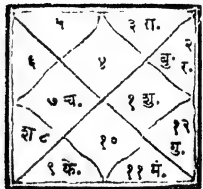 ५ ३ रा.
६ ४ बु. २ र.
७ च. १ शु.
श ८ १० १२ गु.
९ के. ११ मं.